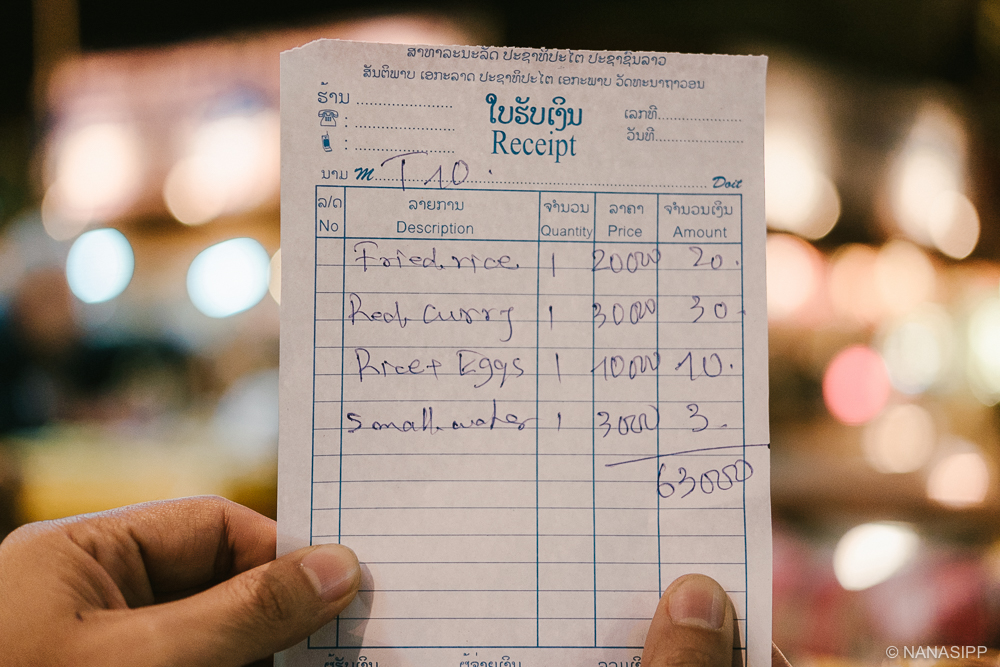 ສາທາລະນະລັດ ປະຊາທິປະໄຕ ປະຊາຊົນລາວ
ສັນຕິພາບ ເອກະລາດ ປະຊາທິປະໄຕ ເອກະພາບ ວັດທະນາຖາວອນ
ຮ້ານ ....................
ໃບຮັບເງິນ
ເລກທີ....................
☎ : ....................
Receipt
ວັນທີ....................
: ....................
ນາມ M. T 10 Doit
ລ/ດ ລາຍການ ຈຳນວນ ລາຄາ ຈຳນວນເງິນ
No Description Quantity Price Amount
Fried rice 1 20000 20.
Red curry 1 30000 30.
Rice + Eggs 1 10000 10.
Small water 1 3000 3.
63000
ຜູ້ຮັບເງິນ ຜູ້ຈ່າຍເງິນ ລວມເງິນ
© NANASIPP